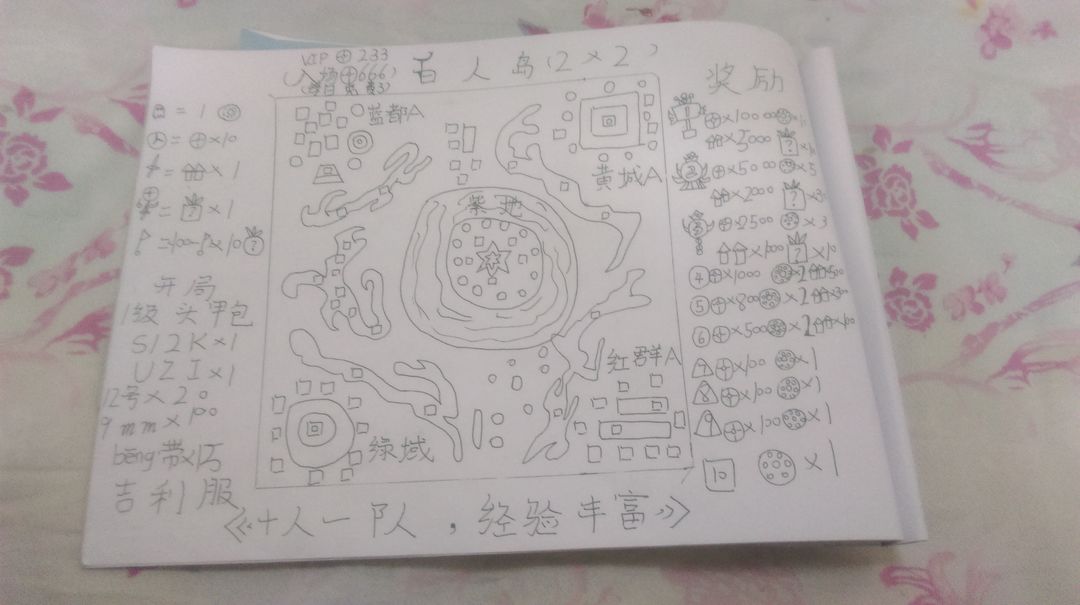 VIP⊕233
(入场⊕666)
百人岛(2×2)
= 1
= ⊕×10
= ×1
= ?×1
=100 ×10 ?
开局
1级头甲包
S12K×1
UZI×1
12号×20
9mm×100
bēng带×15
吉利服
蓝都A
黄城A
紫地
红群A
绿域
奖励
⊕×10000
×5000 ?
2 ⊕×5000 ×5
×2000 ?×3
3 ⊕×2500 ×3
×1000 ?×10
④⊕×1000 ×2 ×500
⑤⊕×800 ×2 ×300
⑥⊕×500 ×2 ×100
7 ⊕×100 ×1
8 ⊕×100 ×1
9 ⊕×100 ×1
10 ×1
《十人一队，经验丰富》